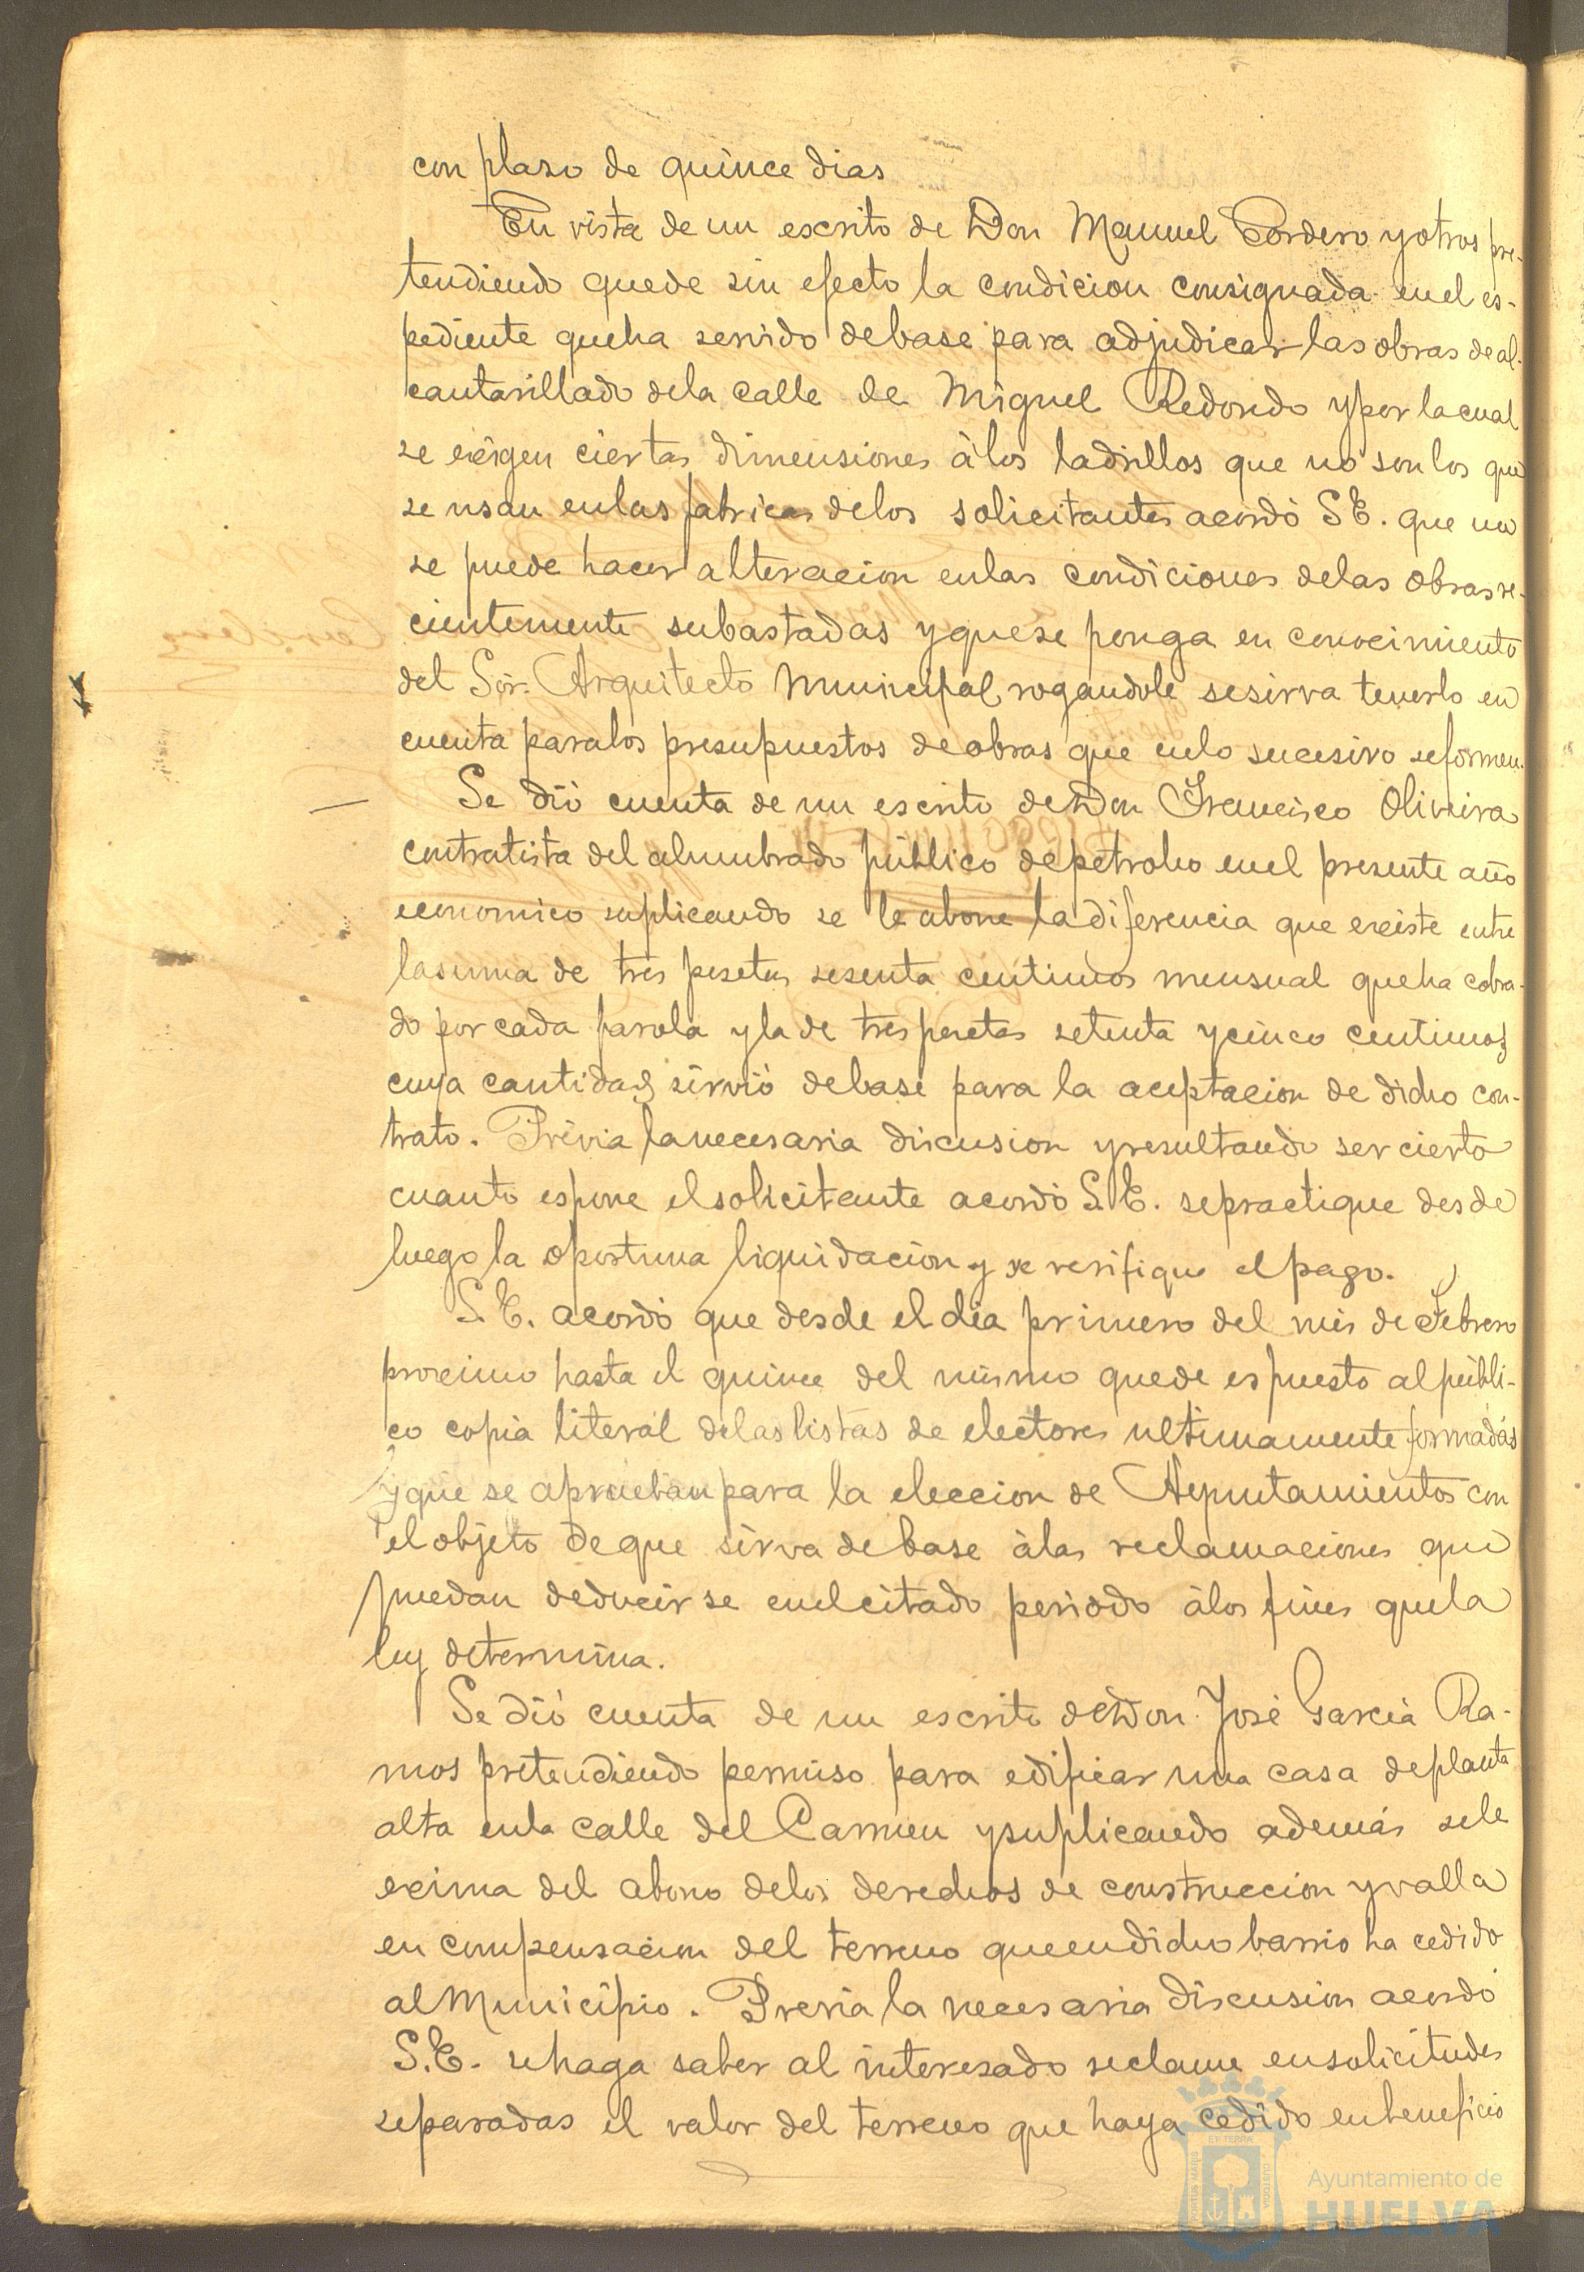 con plazo de quince dias
En vista de un escrito de Don Manuel Cordero y otros pre-
tendiendo quede sin efecto la condicion consignada en el es-
pediente que ha servido de base para adjudicar las obras de al-
cantarillado de la calle de Miguel Redondo y por la cual
se exigen ciertas dimensiones à los ladrillos que no son los que
se usan en las fabricas de los solicitantes acordó S.E. que no
se puede hacer alteracion en las condiciones de las obras re-
cientemente subastadas y que se ponga en conocimiento
del Sór. Arquitecto Municipal rogandole se sirva tenerlo en
cuenta para los presupuestos de obras que en lo sucesivo se formen.
Se dió cuenta de un escrito de Don Francisco Oliveira
contratista del alumbrado público de petroleo en el presente año
economico suplicando se le abone la diferencia que existe entre
la suma de tres pesetas sesenta centimos mensual que ha cobra-
do por cada farola y la de tres pesetas setenta y cinco centimos
cuya cantidad sirvió de base para la aceptacion de dicho con-
trato. Prévia la necesaria discusion y resultando ser cierto
cuanto espone el solicitante acordó S.E. se practique desde
luego la oportuna liquidacion y se verifique el pago.
S.E. acordó que desde el dia primero del mes de Febrero
proximo hasta el quince del mismo quede espuesto al públi-
co copia literal de las listas de electores ultimamente formadas
y que se aprueban para la eleccion de Ayuntamientos con
el objeto de que sirva de base à las reclamaciones que
puedan deducirse en el citado periodo à los fines que la
ley determina.
Se dió cuenta de un escrito de Don José Garcia Ra-
mos pretendiendo permiso para edificar una casa de planta
alta en la calle del Carmen y suplicando además se le
exima del abono de los derechos de construccion y valla
en compensacion del terreno que en dicho barrio ha cedido
al Municipio. Previa la necesaria discusion acordó
S.E. se haga saber al interesado reclame en solicitudes
separadas el valor del terreno que haya cedido en beneficio
Ayuntamiento de
HUELVA